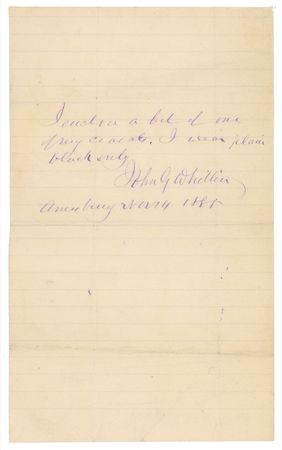 I enclose a bit of one
of my cravats. I wear plain
black only
John G Whittier
Amesbury 14 188